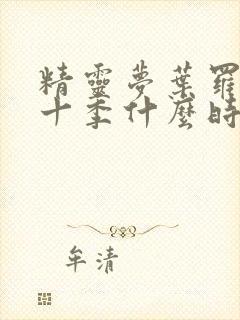 精靈夢葉羅
十季什麼時
牟清